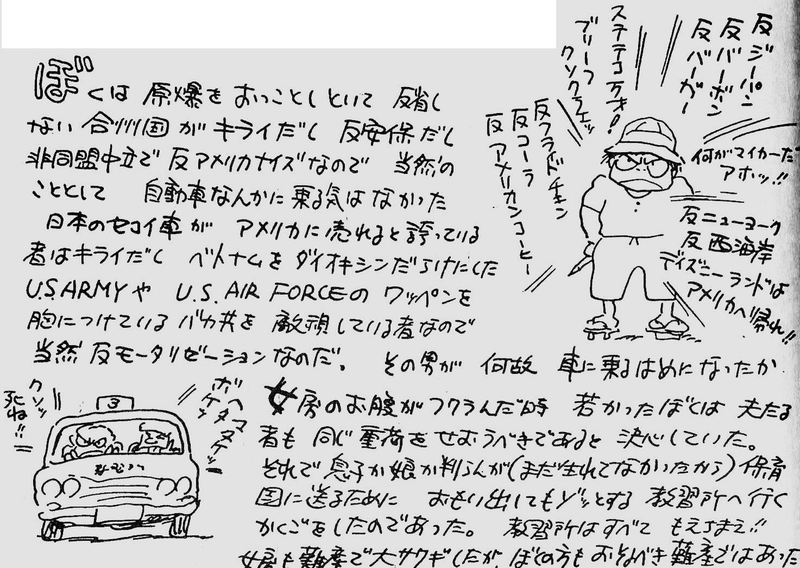 ぼくは 原爆を おっことしといて 反省し
ない 合州国が キライだし 反安保だし
非同盟中立で 反アメリカナイズなので 当然の
こととして 自動車なんかに 乗る気はなかった
日本のセコイ車が アメリカに 売れると誇っている
者はキライだし ベトナムをダイオキシンだらけにした
U.S.ARMYや U.S. AIR FORCEの ワッペンを
胸につけている バカ共を 敵視している者なので
当然 反モータリゼーションなのだ。 その男が 何故 車に乗るはめになったか
女房のお腹がフクランだ時 若かったぼくは 夫たる
者も 同じ重荷をせおうべきであると 決心していた。
それで 息子か娘か判らんが(まだ生れてなかったから) 保育
園に送るために おもい出してもゾッとする 教習所へ行く
かくごをしたのであった。 教習所はすべて もえちまえ!!
女房も難産で大サワギしたが、ぼくの方もおそるべき難産ではあった
反ジーパン
反バーボン
反バーガー
ステテコ万才!
ブリーフ
クソクラエッ
反フライドチキン
反コーラ
反アメリカンコーヒー
何がマイカーだ
アホッ!!
反ニューヨーク
反西海岸
ディズニーランドは
アメリカへ帰れ!!
3
ヘタッ
マヌケッ
ボケッ
クソッ
死ね!!